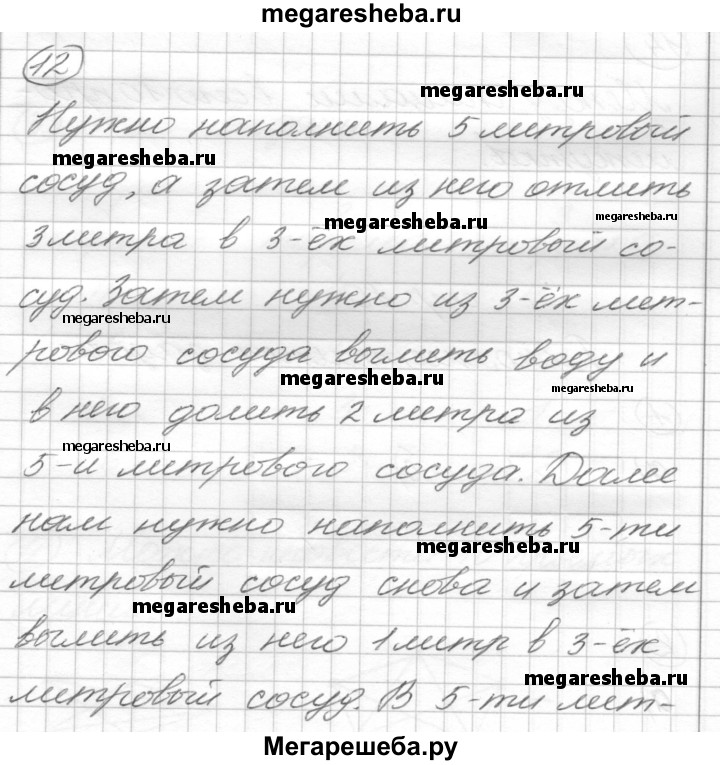 megaresheba.ru
12
megaresheba.ru
Нужно наполнить 5 литровый
megaresheba.ru
сосуд, а затем из него отлить
megaresheba.ru
megaresheba.ru
3 литра в 3-ёх литровый со-
суд. Затем нужно из 3-ёх лит-
megaresheba.ru
рового сосуда вылить воду и
megaresheba.ru
megaresheba.ru
в него долить 2 литра из
megaresheba.ru
5-и литрового сосуда. Далее
нам нужно наполнить 5-ти
megaresheba.ru
литровый сосуд снова и затем
megaresheba.ru
вылить из него 1 литр в 3-ёх
литровый сосуд. В 5-ти лит-
megaresheba.ru
Мегарешеба.ру